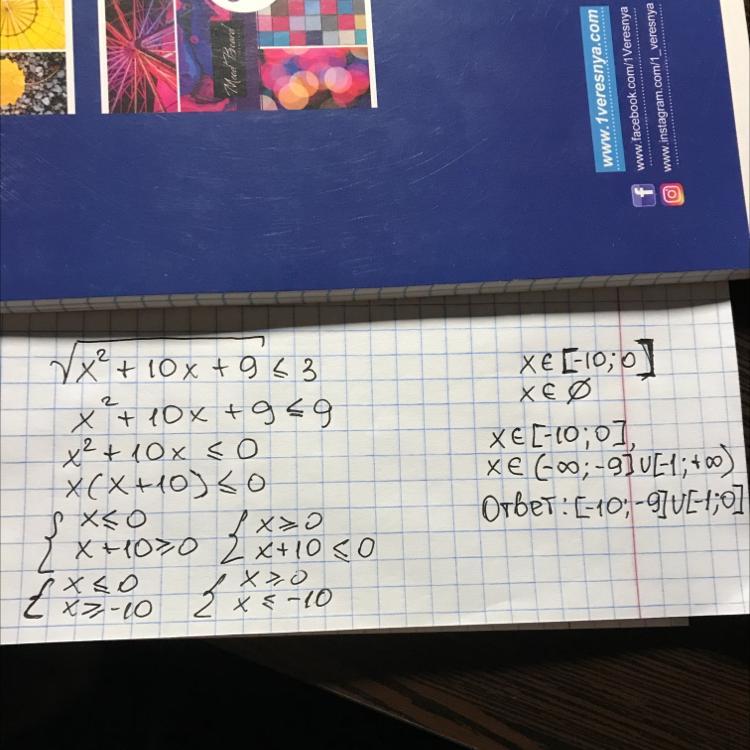 Mood Board
www.1veresnya.com
www.facebook.com/1Veresnya
www.instagram.com/1_veresnya
√x² + 10x + 9 ≤ 3
x² + 10x + 9 ≤ 9
x² + 10x ≤ 0
x(x+10) ≤ 0
{ x ≤ 0 { x ≥ 0
x + 10 ≥ 0 x + 10 ≤ 0
{ x ≤ 0 { x ≥ 0
x ≥ -10 x ≤ -10
x ∈ [-10; 0]
x ∈ ∅
x ∈ [-10; 0],
x ∈ (-∞; -9] ∪ [-1; +∞)
Ответ: [-10; -9] ∪ [-1; 0]